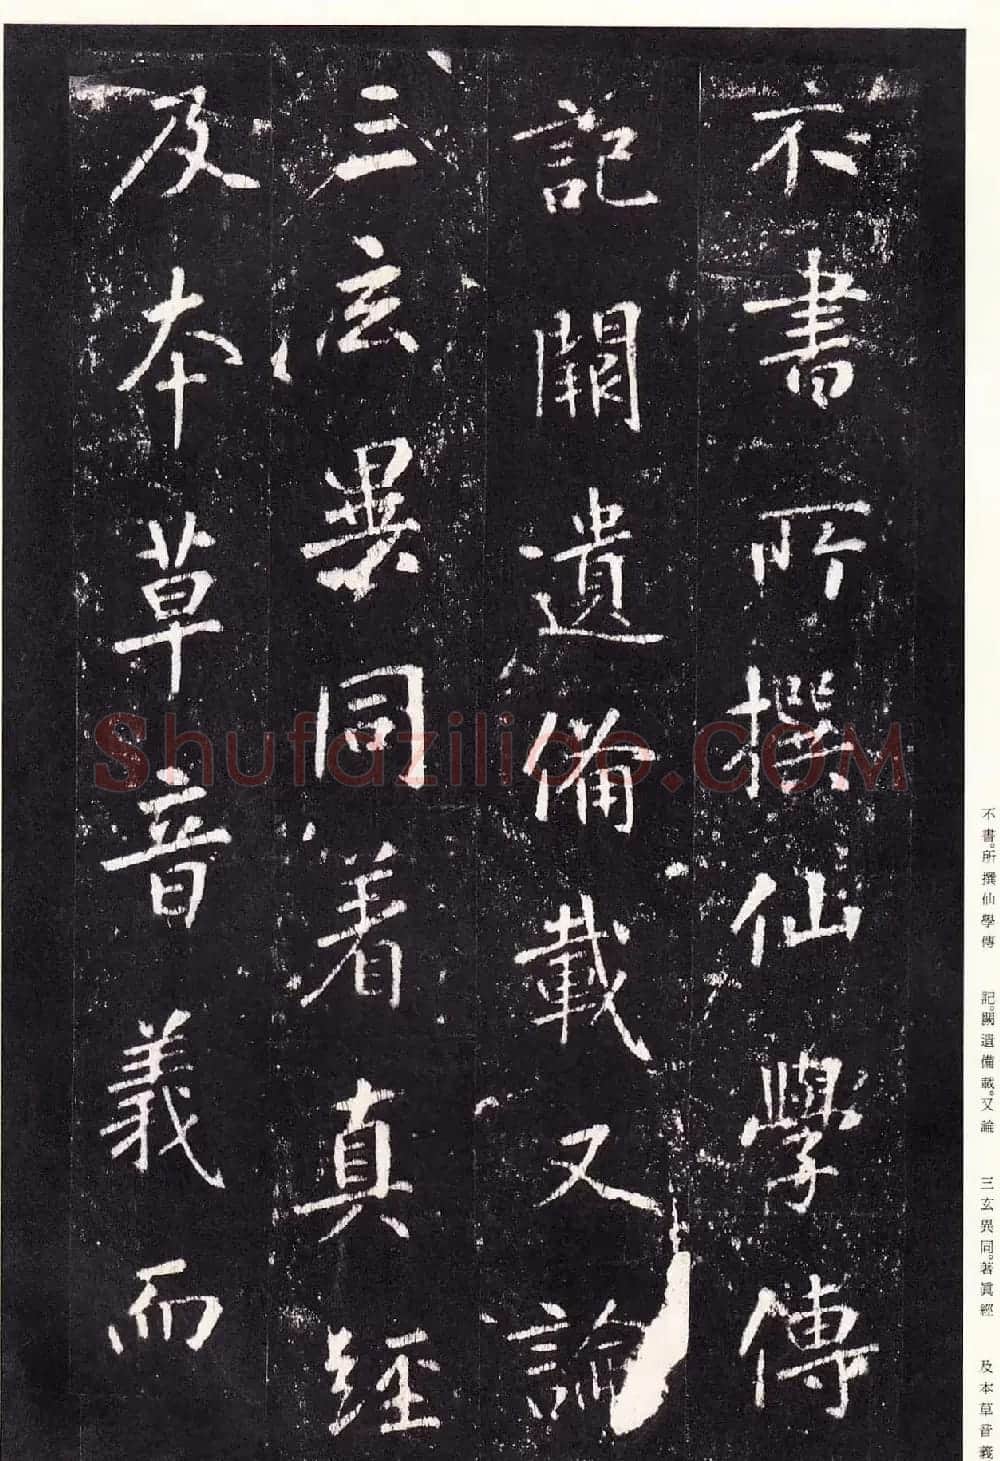 不書所撰仙學傳
記闕遺備載又論
三玄異同着真經
及本草音義而
Shufaziliao.COM
不書。所撰仙學傳
記。闕遺備載。又論
三玄異同。著眞經
及本草音義